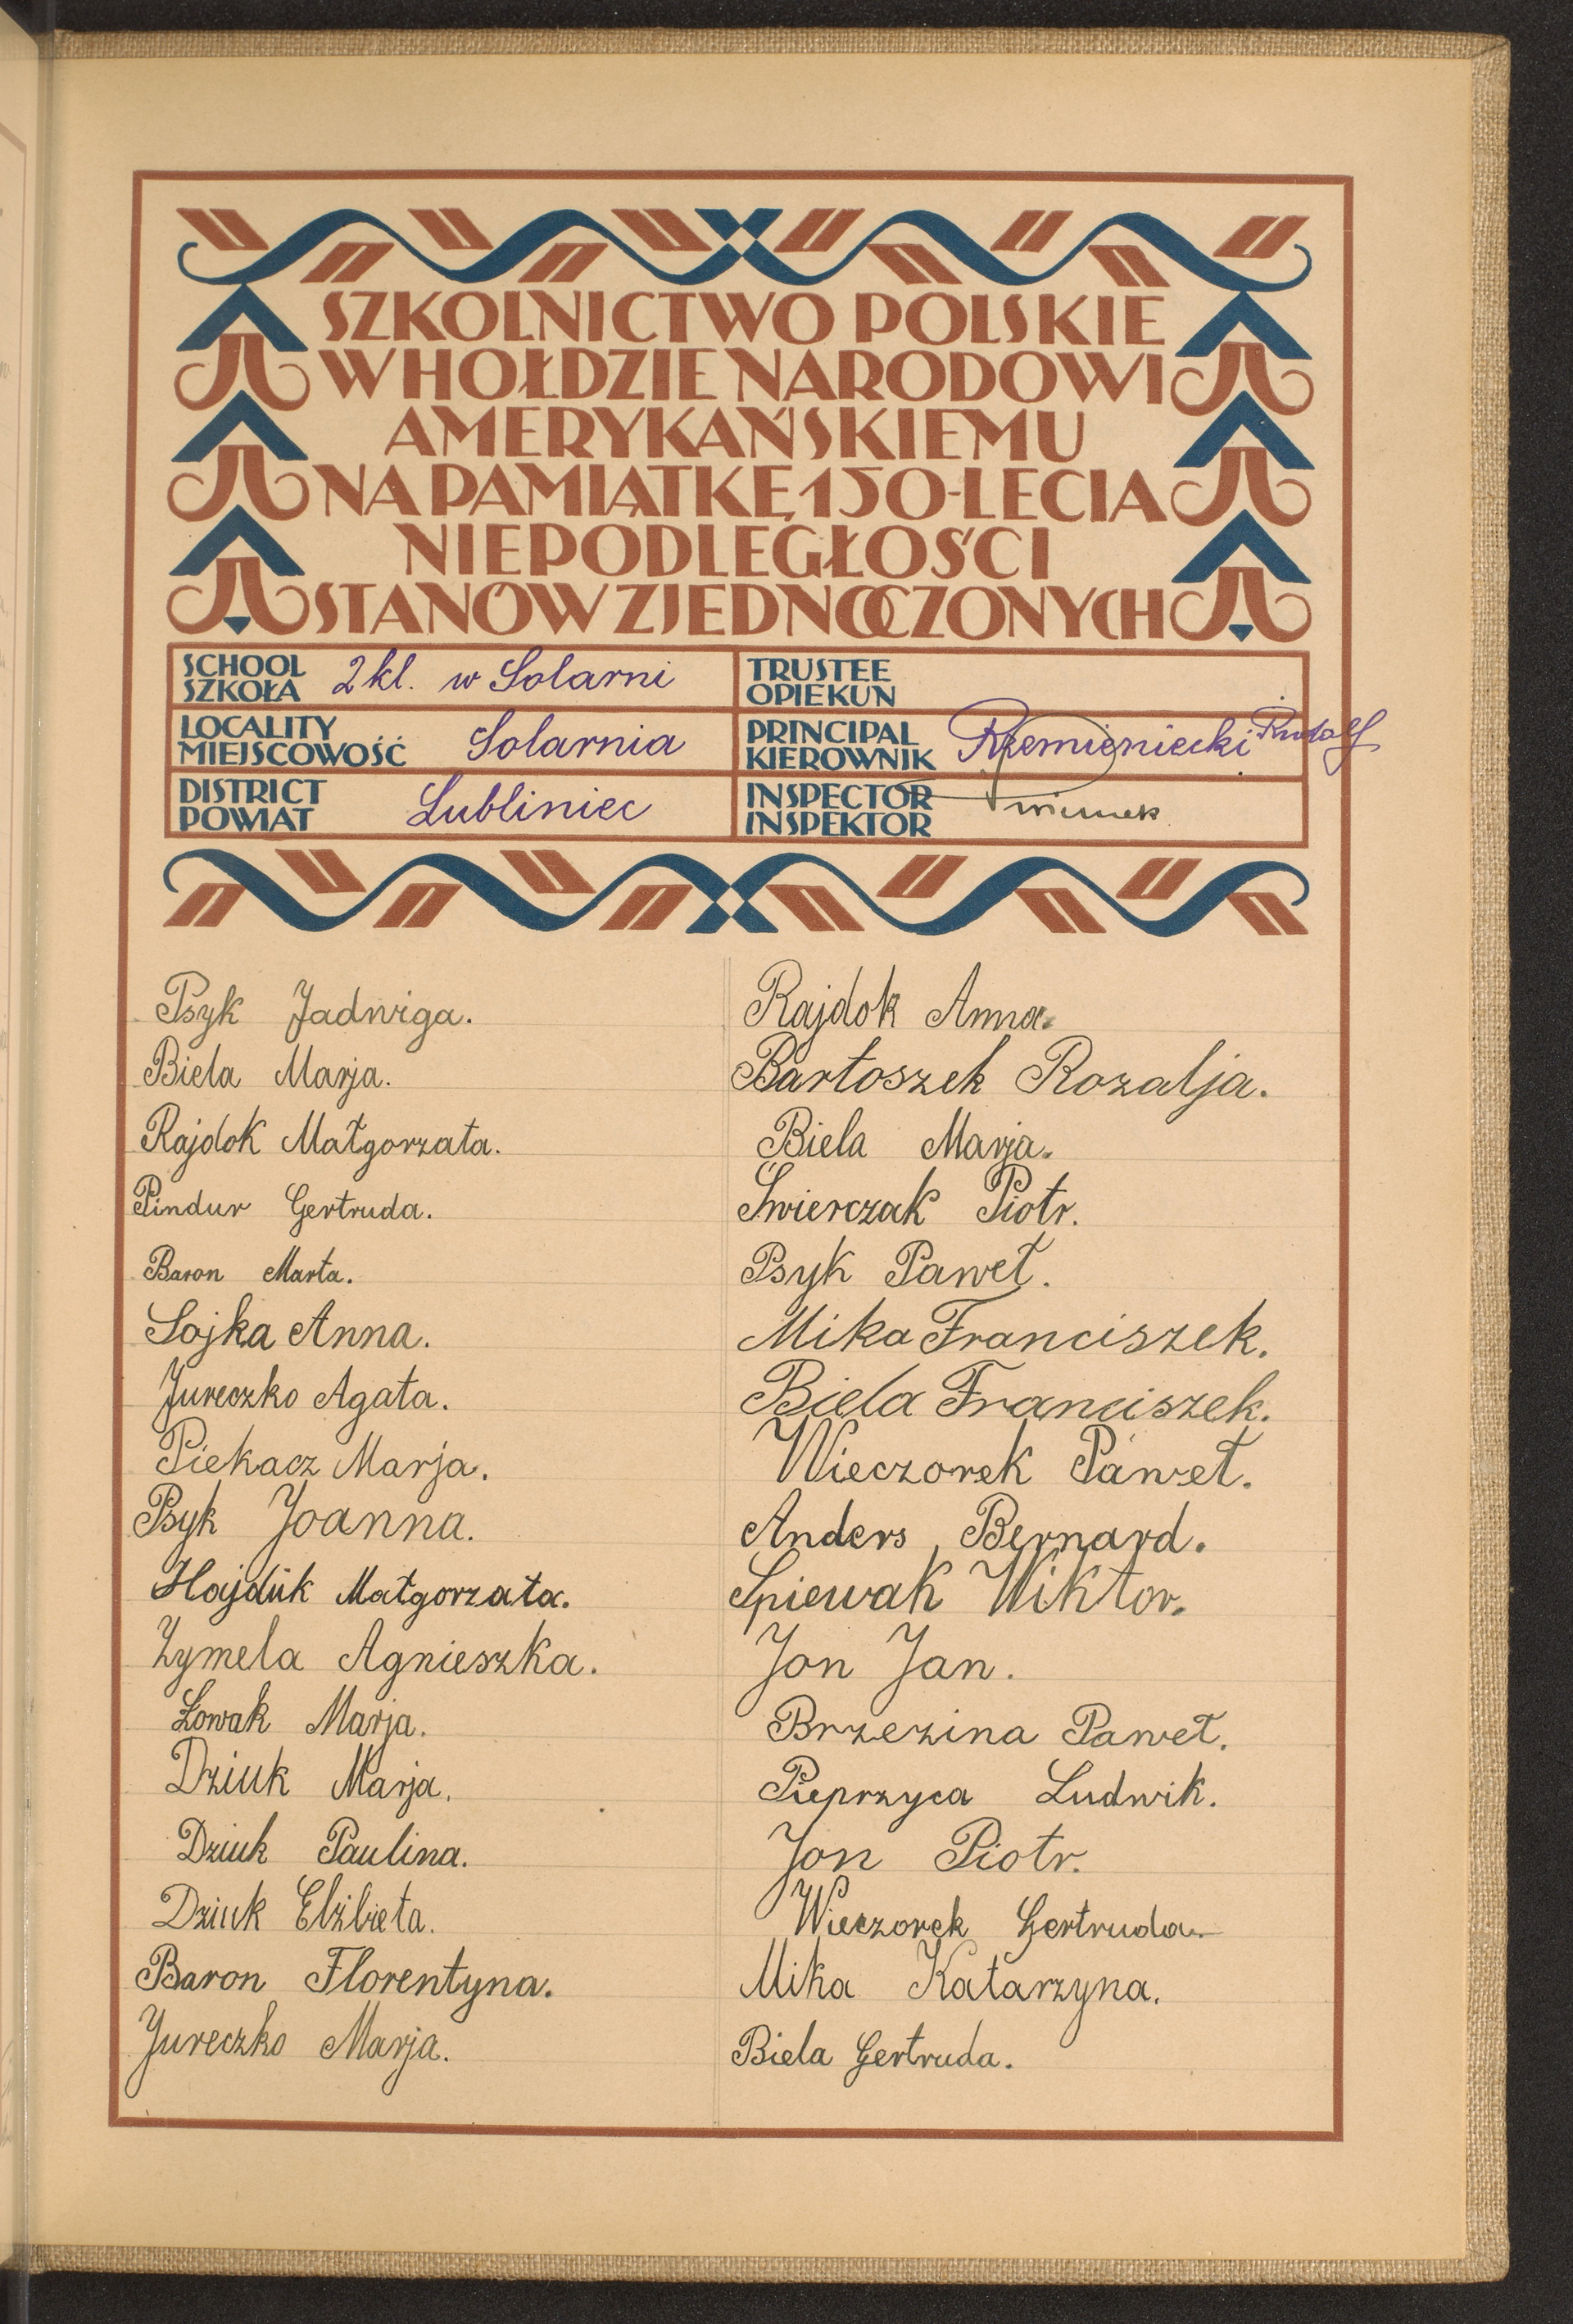 SZKOLNICTWO POLSKIE
W HOŁDZIE NARODOWI
AMERYKAŃSKIEMU
NA PAMIĄTKĘ 150-LECIA
NIEPODLEGŁOŚCI
STANÓW ZJEDNOCZONYCH
SCHOOL
SZKOŁA 2 kl. w Solarni
TRUSTEE
OPIEKUN
LOCALITY
MIEJSCOWOŚĆ Solarnia
PRINCIPAL
KIEROWNIK Rzemieniecki Rudolf
DISTRICT
POWIAT Lubliniec
INSPECTOR
INSPEKTOR
Psyk Jadwiga.
Biela Marja.
Rajdok Małgorzata.
Pindur Gertruda.
Baron Marta.
Sojka Anna.
Jureczko Agata.
Piekacz Marja.
Psyk Joanna.
Hajdŭk Małgorzata.
Zymela Agnieszka.
Łowak Marja.
Dziuk Marja.
Dziuk Paulina.
Dziuk Elżbieta.
Baron Florentyna.
Jureczko Marja.
Rajdok Anna.
Bartoszek Rozalja.
Biela Marja.
Świerczak Piotr.
Psyk Paweł.
Mika Franciszek.
Biela Franciszek.
Wieczorek Paweł.
Anders Bernard.
Spiewak Wiktor.
Jon Jan.
Brzezina Paweł.
Pieprzyca Ludwik.
Jon Piotr.
Wieczorek Gertruda.
Mika Katarzyna.
Biela Gertruda.